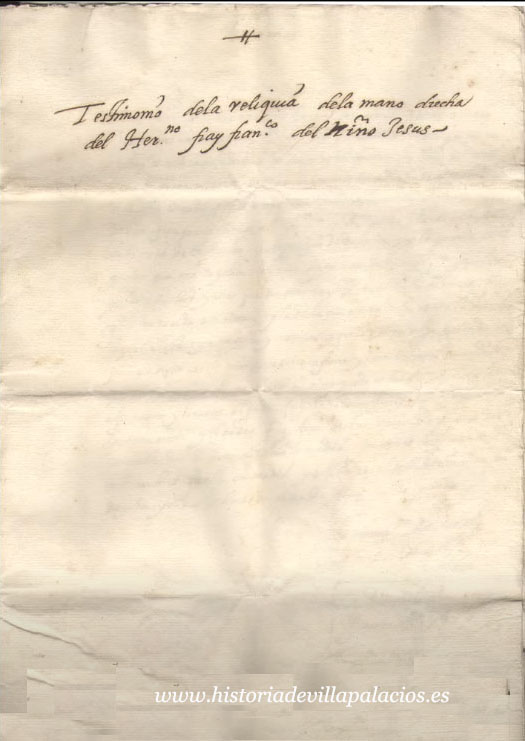 Testimonio dela reliquia dela mano drecha
del Her.no fray fran.co del Niño Jesus
www.historiadevillapalacios.es